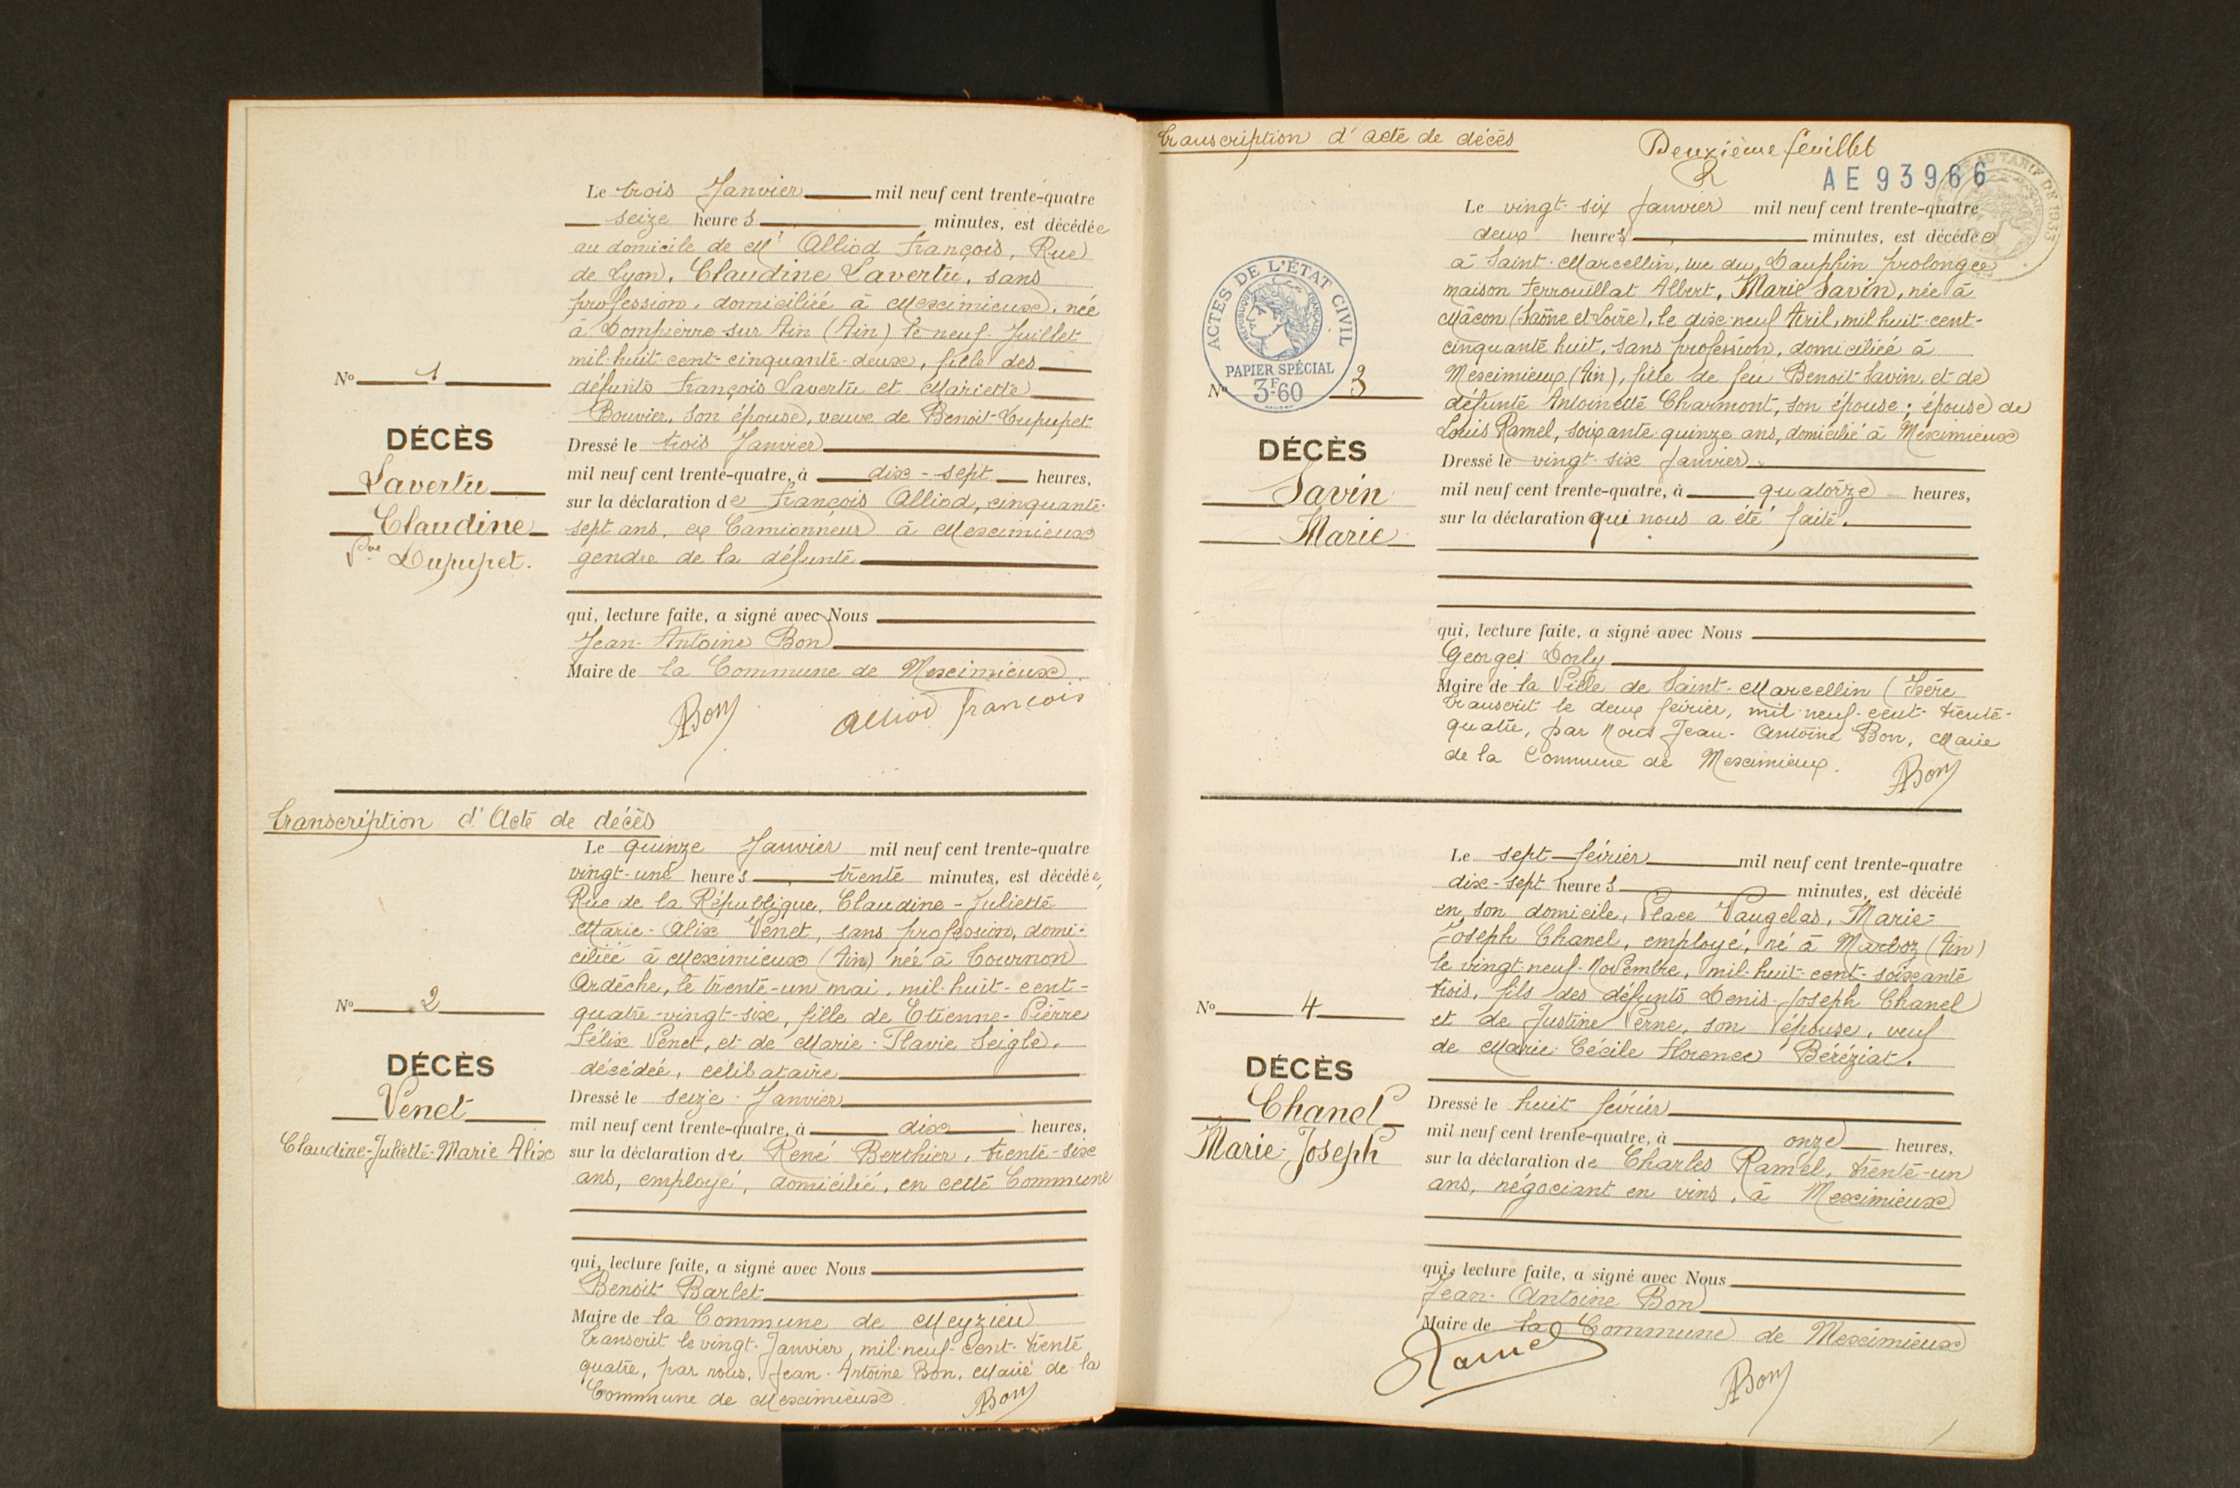 Le trois Janvier mil neuf cent trente-quatre
seize heures minutes, est décédée
au domicile de Mr Alliod François, Rue
de Lyon, Claudine Lavertu, sans
profession, domiciliée à Meximieux, née
à Dompierre sur Ain (Ain) le neuf Juillet
mil-huit-cent-cinquante-deux, fille des
défunts François Lavertu et Mariette
Bouvier, son épouse, veuve de Benoit Dupupet
Dressé le trois Janvier
mil neuf cent trente-quatre, à dix-sept heures,
sur la déclaration de François Alliod, cinquante-
sept ans, ex Camionneur à Meximieux
gendre de la défunte
qui, lecture faite, a signé avec Nous
Jean-Antoine Bon
Maire de la Commune de Meximieux
ABon Alliod François
No 1
DÉCÈS
Lavertu
Claudine
Vve Dupupet.
Transcription d'Acte de décès
Le quinze Janvier mil neuf cent trente-quatre
vingt-une heures, trente minutes, est décédée,
Rue de la République, Claudine-Juliette
Marie-Alix Venet, sans profession, domi-
ciliée à Meximieux (Ain) née à Tournon
Ardèche, le trente-un mai, mil-huit-cent-
quatre-vingt-six, fille de Etienne-Pierre
Félix Venet, et de Marie-Flavie Seigle,
décédée, célibataire
Dressé le seize Janvier
mil neuf cent trente-quatre, à dix heures,
sur la déclaration de René Berthier, trente-six
ans, employé, domicilié, en cette Commune
qui, lecture faite, a signé avec Nous
Benoit Barlet
Maire de la Commune de Meyzieu
Transcrit le vingt Janvier, mil-neuf-cent-trente
quatre, par nous, Jean-Antoine Bon, Maire de la
Commune de Meximieux. ABon
No 2
DÉCÈS
Venet
Claudine-Juliette-Marie Alix
Transcription d'acte de décès
Deuxième feuillet
AE 93966
Le vingt-six Janvier mil neuf cent trente-quatre
deux heures, minutes, est décédée
à Saint-Marcellin, rue du Dauphin prolongée
maison Ferrouillat Albert, Marie Savin, née à
Mâcon (Saône et Loire), le dix-neuf Avril, mil huit-cent-
cinquante huit, sans profession, domiciliée à
Meximieux (Ain), fille de feu Benoit Savin et de
défunte Antoinette Charmont, son épouse; épouse de
Louis Ramel, soixante quinze ans, domicilié à Meximieux
Dressé le vingt-six Janvier
mil neuf cent trente-quatre, à quatorze heures,
sur la déclaration qui nous a été faite.
qui, lecture faite, a signé avec Nous
Georges Dorly
Maire de la Ville de Saint-Marcellin (Isère
Transcrit le deux février, mil-neuf-cent-trente-
quatre, par Nous Jean-Antoine Bon, Maire
de la Commune de Meximieux.
ABon
ACTES DE L'ÉTAT CIVIL
RÉPUBLIQUE FRANÇAISE
PAPIER SPÉCIAL
3F60
No 3
DÉCÈS
Savin
Marie
Le sept février mil neuf cent trente-quatre
dix-sept heures minutes, est décédé
en son domicile, Place Vaugelas, Marie-
Joseph Chanel, employé, né à Marboz (Ain)
le vingt-neuf-Novembre, mil-huit-cent-soixante
trois, fils des défunts Denis-Joseph Chanel
et de Justine Perne, son épouse, veuf
de Marie-Cécile Florence Béréziat.
Dressé le huit février
mil neuf cent trente-quatre, à onze heures,
sur la déclaration de Charles Ramel, trente-un
ans, négociant en vins, à Meximieux
qui, lecture faite, a signé avec Nous
Jean-Antoine Bon
Maire de la Commune de Meximieux
Ramel
ABon
No 4
DÉCÈS
Chanel
Marie-Joseph